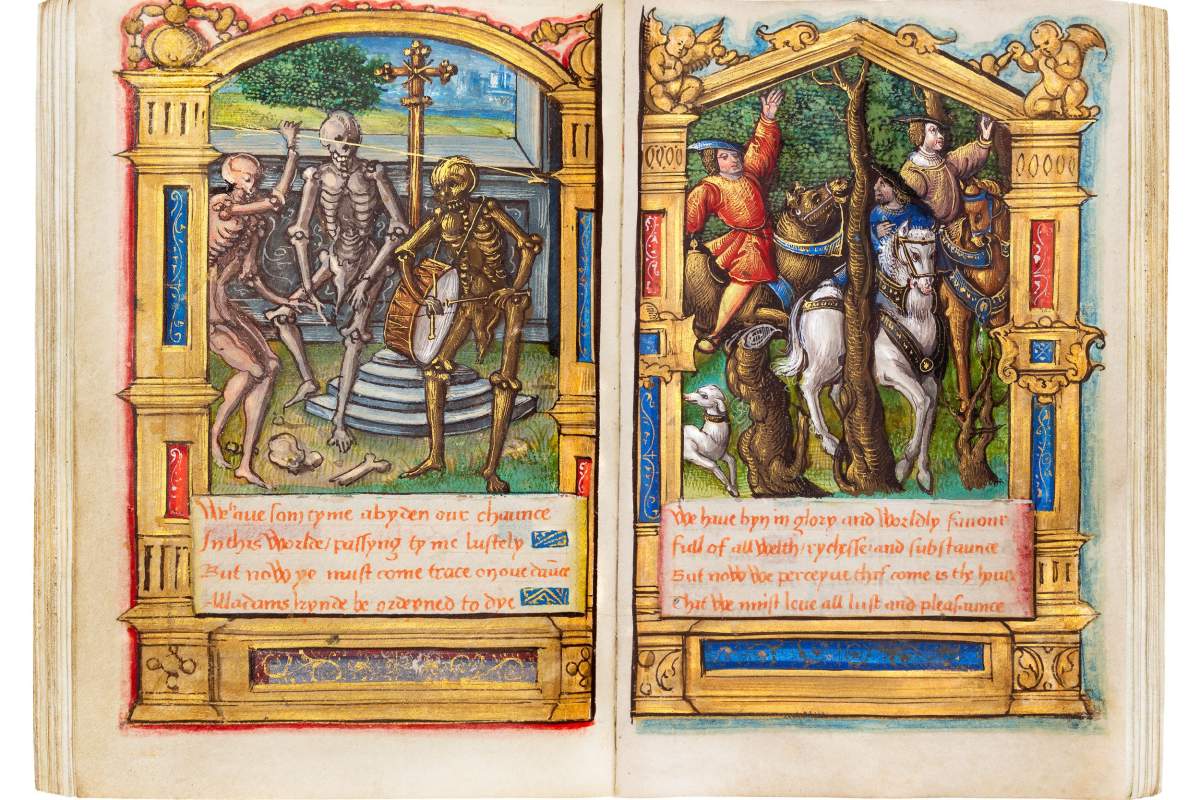 We haue som tyme abyden our chaunce
In this Worlde / passyng tyme lustely
But noW ye must come trace on oure dāuce
All adams kynde be ordeyned to dye
We haue byn in glory and Worldly fauour
full of all Welth / rychesse and substaunce
But noW We perceyue thꝭ come is the houre
That We must leue all lust and pleasaunce